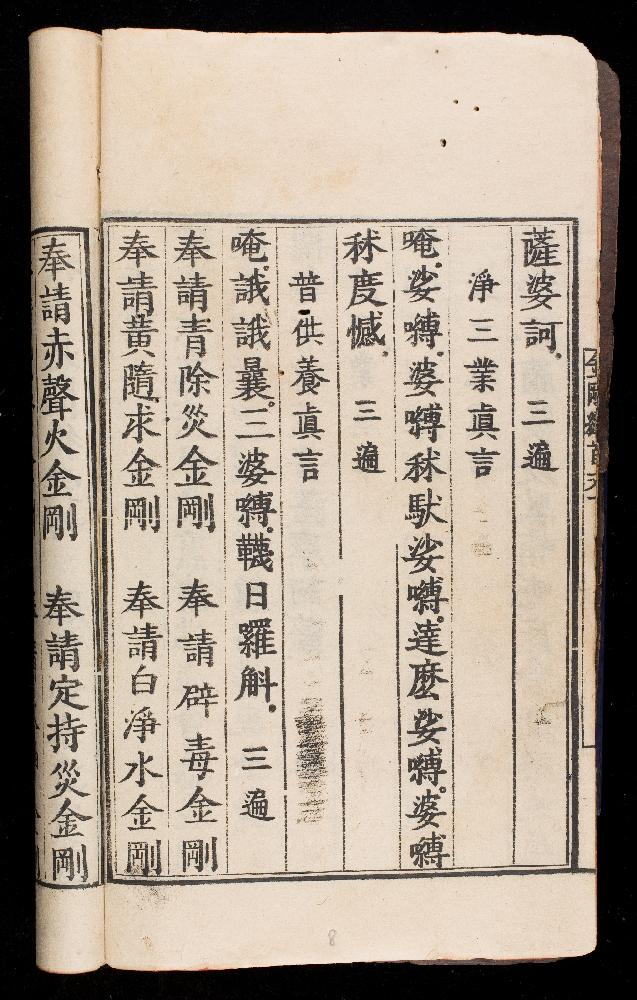 薩婆訶。三遍
淨三業眞言
唵。娑嚩。婆嚩秫馱娑嚩。達麽娑嚩。婆嚩
秫度憾。三遍
普供養眞言
唵。誐誐曩。三婆嚩。韈日羅斛。三遍
奉請青除災金剛 奉請辟毒金剛
奉請黃隨求金剛 奉請白淨水金剛
奉請赤聲火金剛 奉請定持災金剛
8